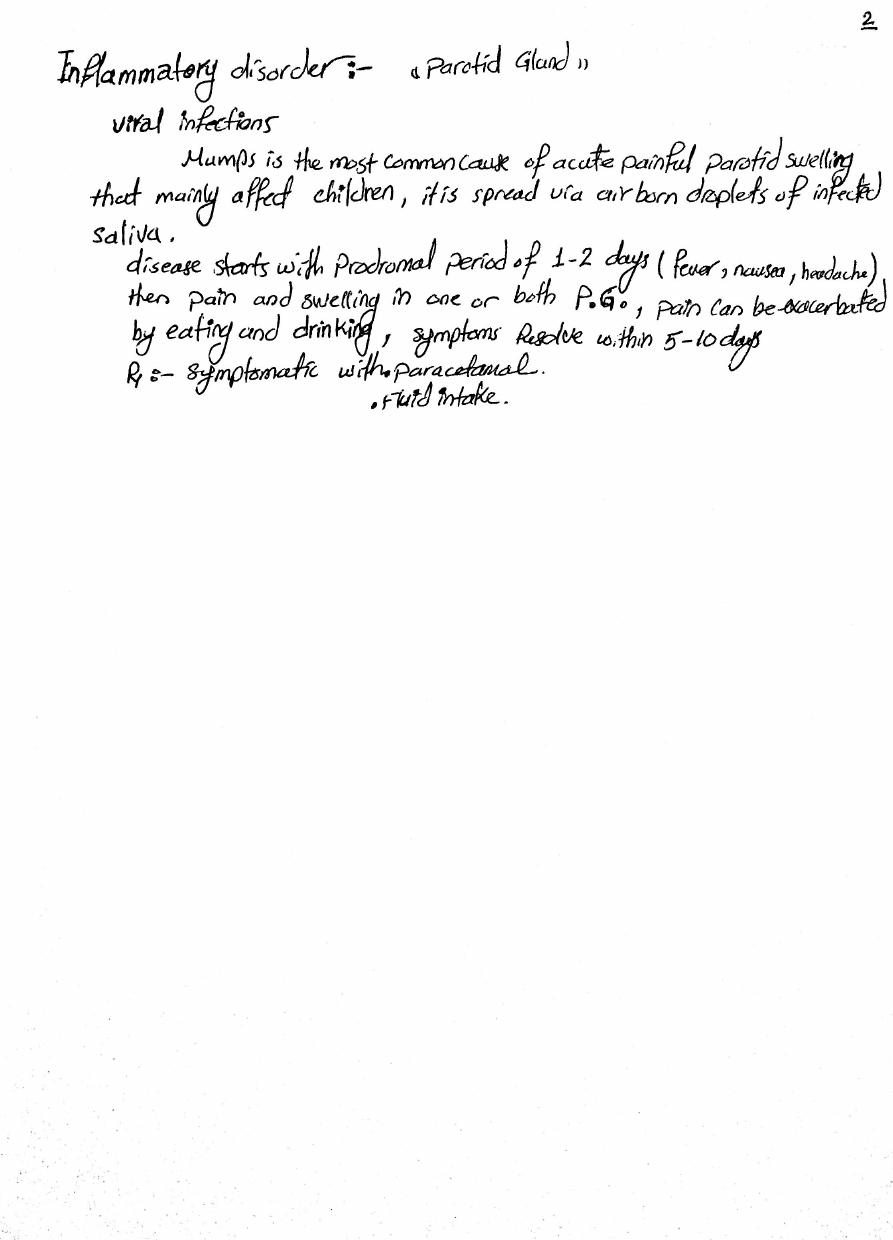 2
Inflammatory disorder :- « Parotid Gland »
viral infections
Mumps is the most common cause of acute painful parotid swelling
that mainly affect children, it is spread via air born droplets of infected
saliva.
disease starts with Prodromal period of 1-2 days ( fever, nausea, headache)
then pain and swelling in one or both P.G., pain can be exacerbated
by eating and drinking, symptoms Resolve within 5-10 days
Rx :- symptomatic with • paracetamal.
• Fluid intake.